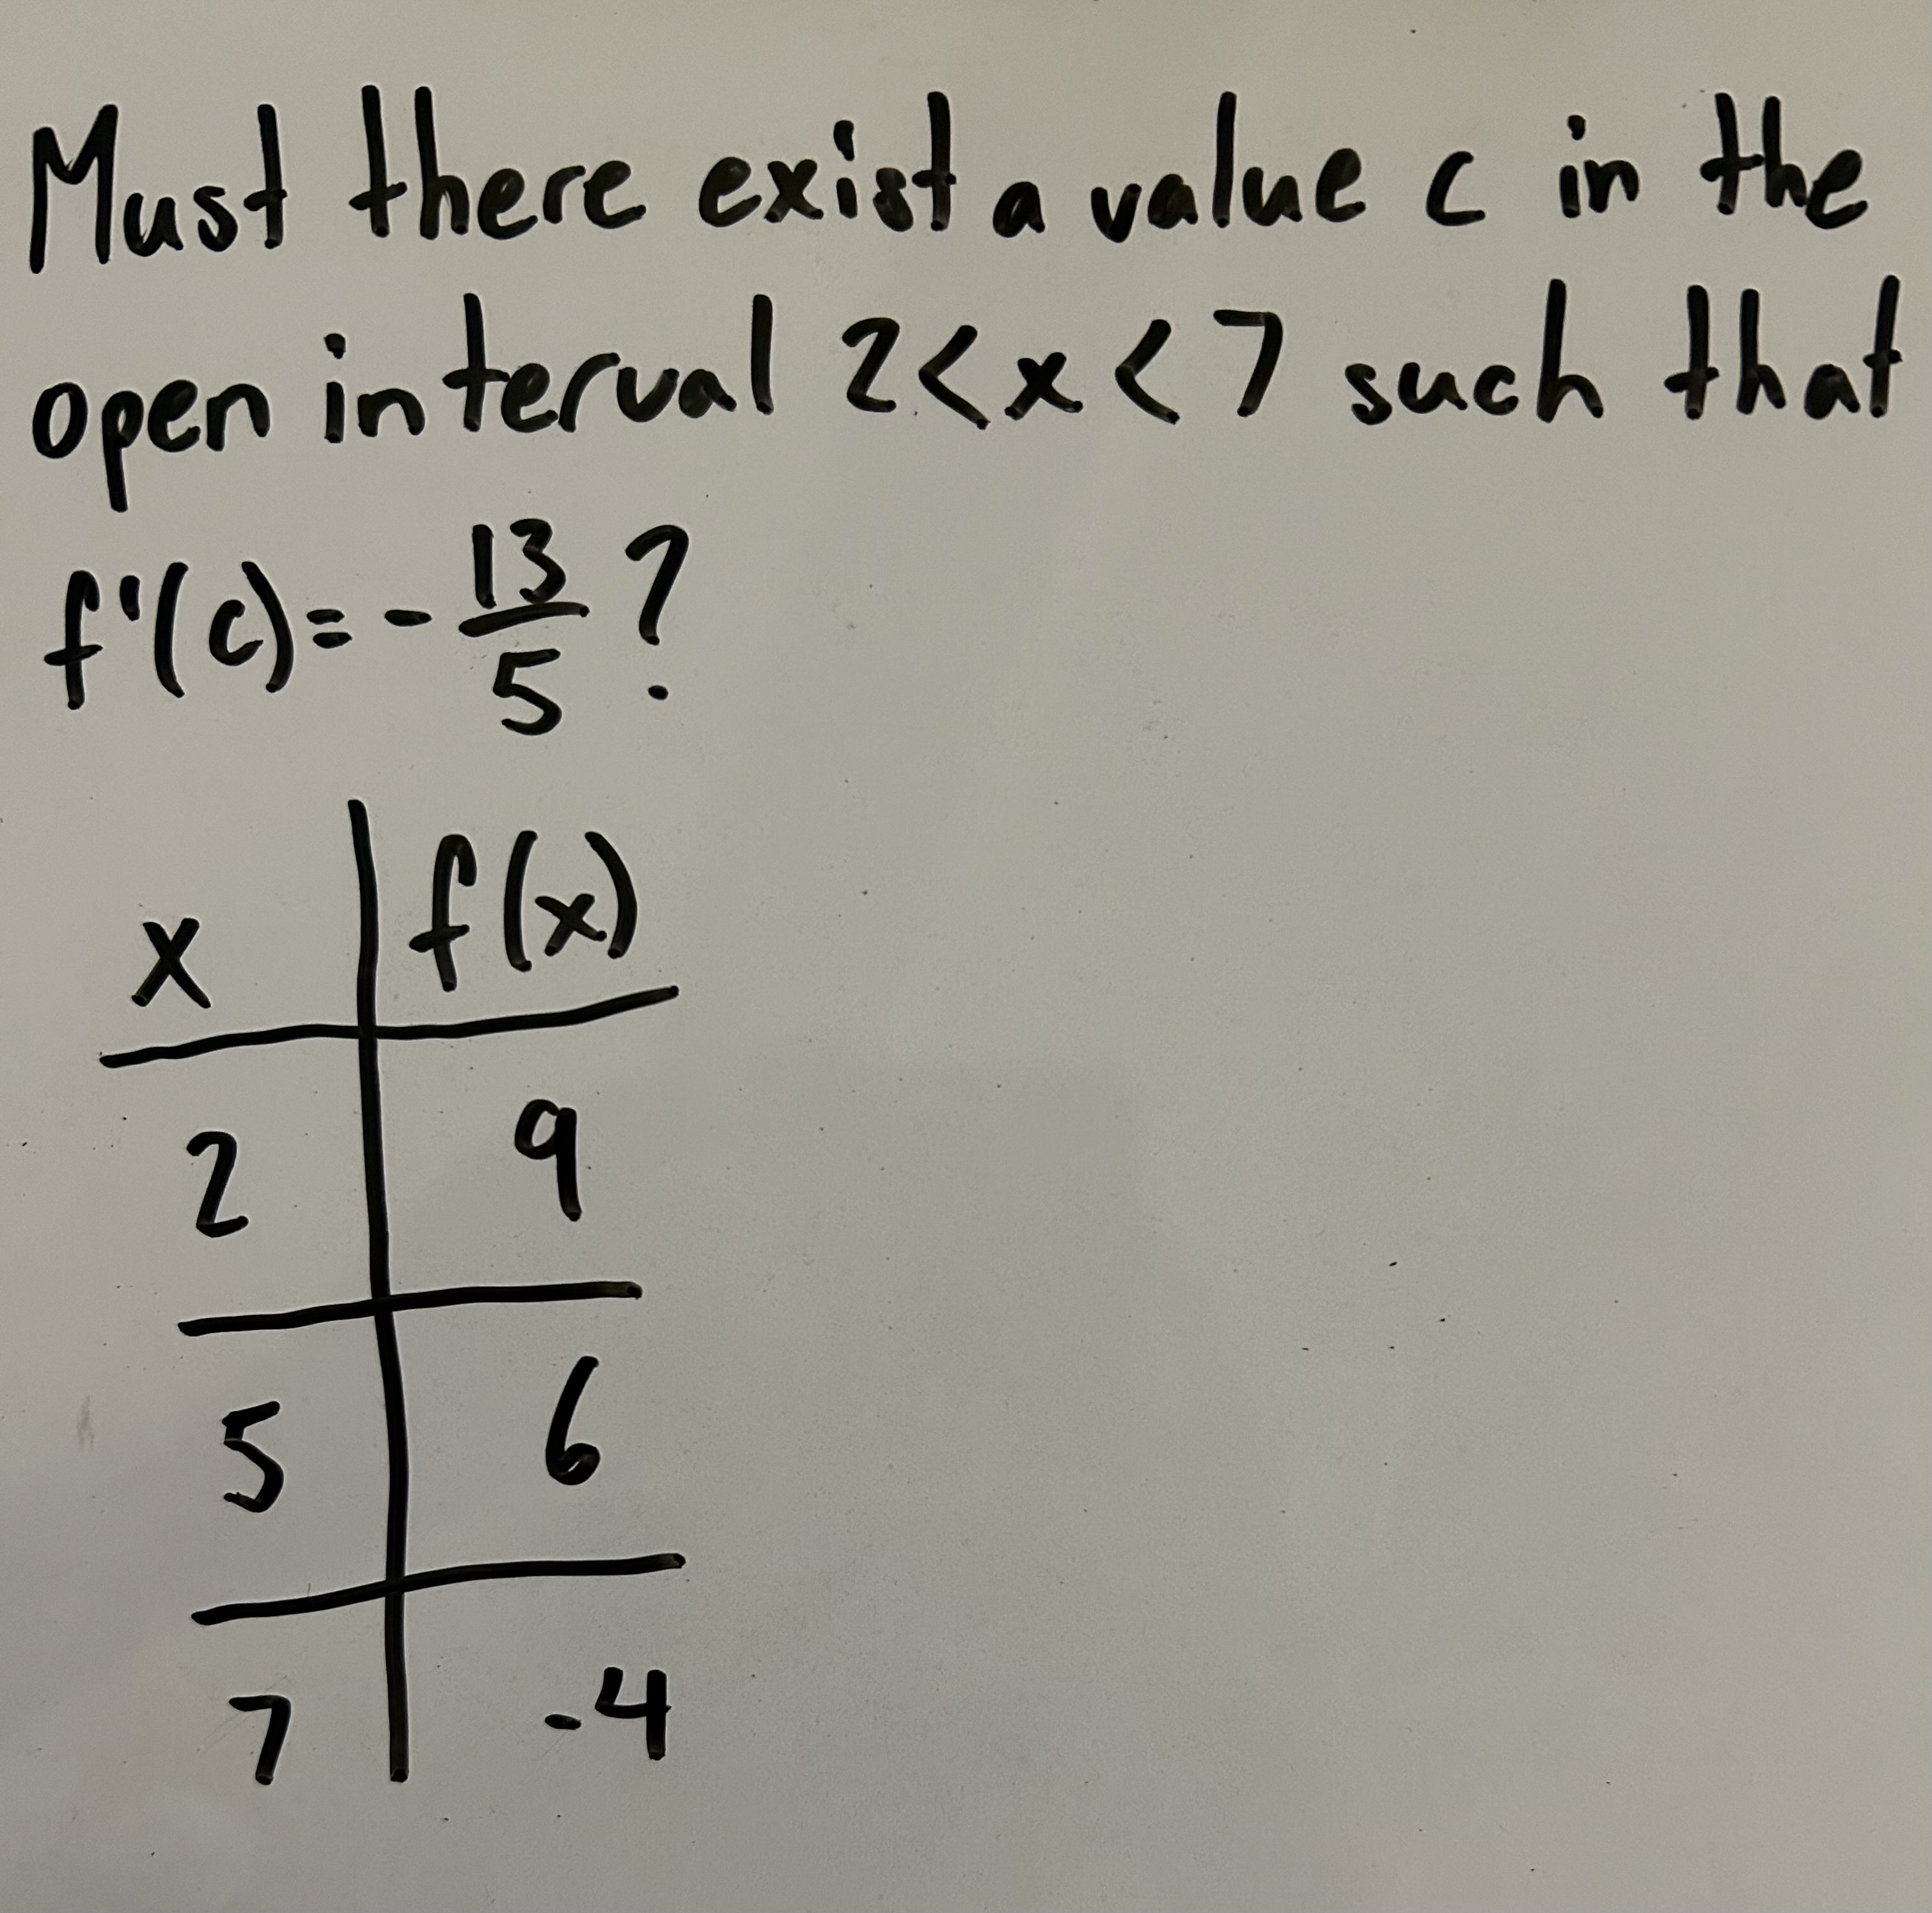 Must there exist a value c in the
open interval 2<x<7 such that
f'(c)=-13/5?
x f(x)
2 9
5 6
7 -4